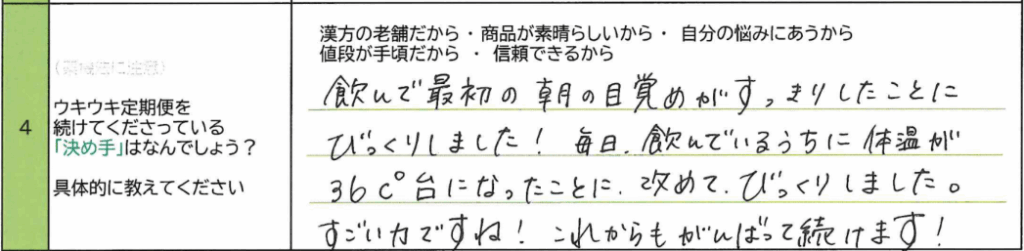 4
ウキウキ定期便を
続けてくださっている
「決め手」はなんでしょう？
具体的に教えてください
漢方の老舗だから・商品が素晴らしいから・ 自分の悩みにあうから
値段が手頃だから ・ 信頼できるから
飲んで最初の朝の目覚めがすっきりしたことに
びっくりしました! 毎日、飲んでいるうちに体温が
36C°台になったことに、改めて、びっくりしました。
すごい力ですね! これからもがんばって続けます!